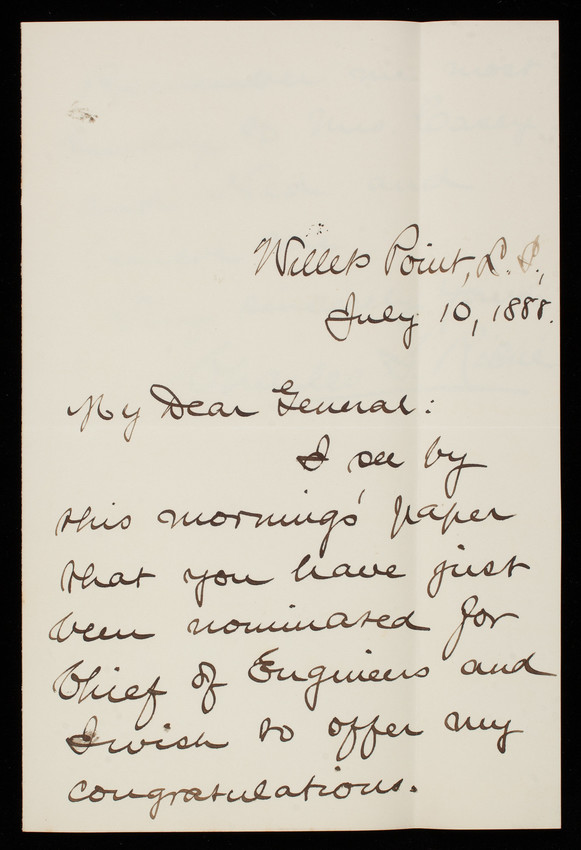 Willets Point, L. I.,
July 10, 1888.
My Dear General:
I see by
this mornings' paper
that you have just
been nominated for
Chief of Engineers and
I wish to offer my
congratulations.